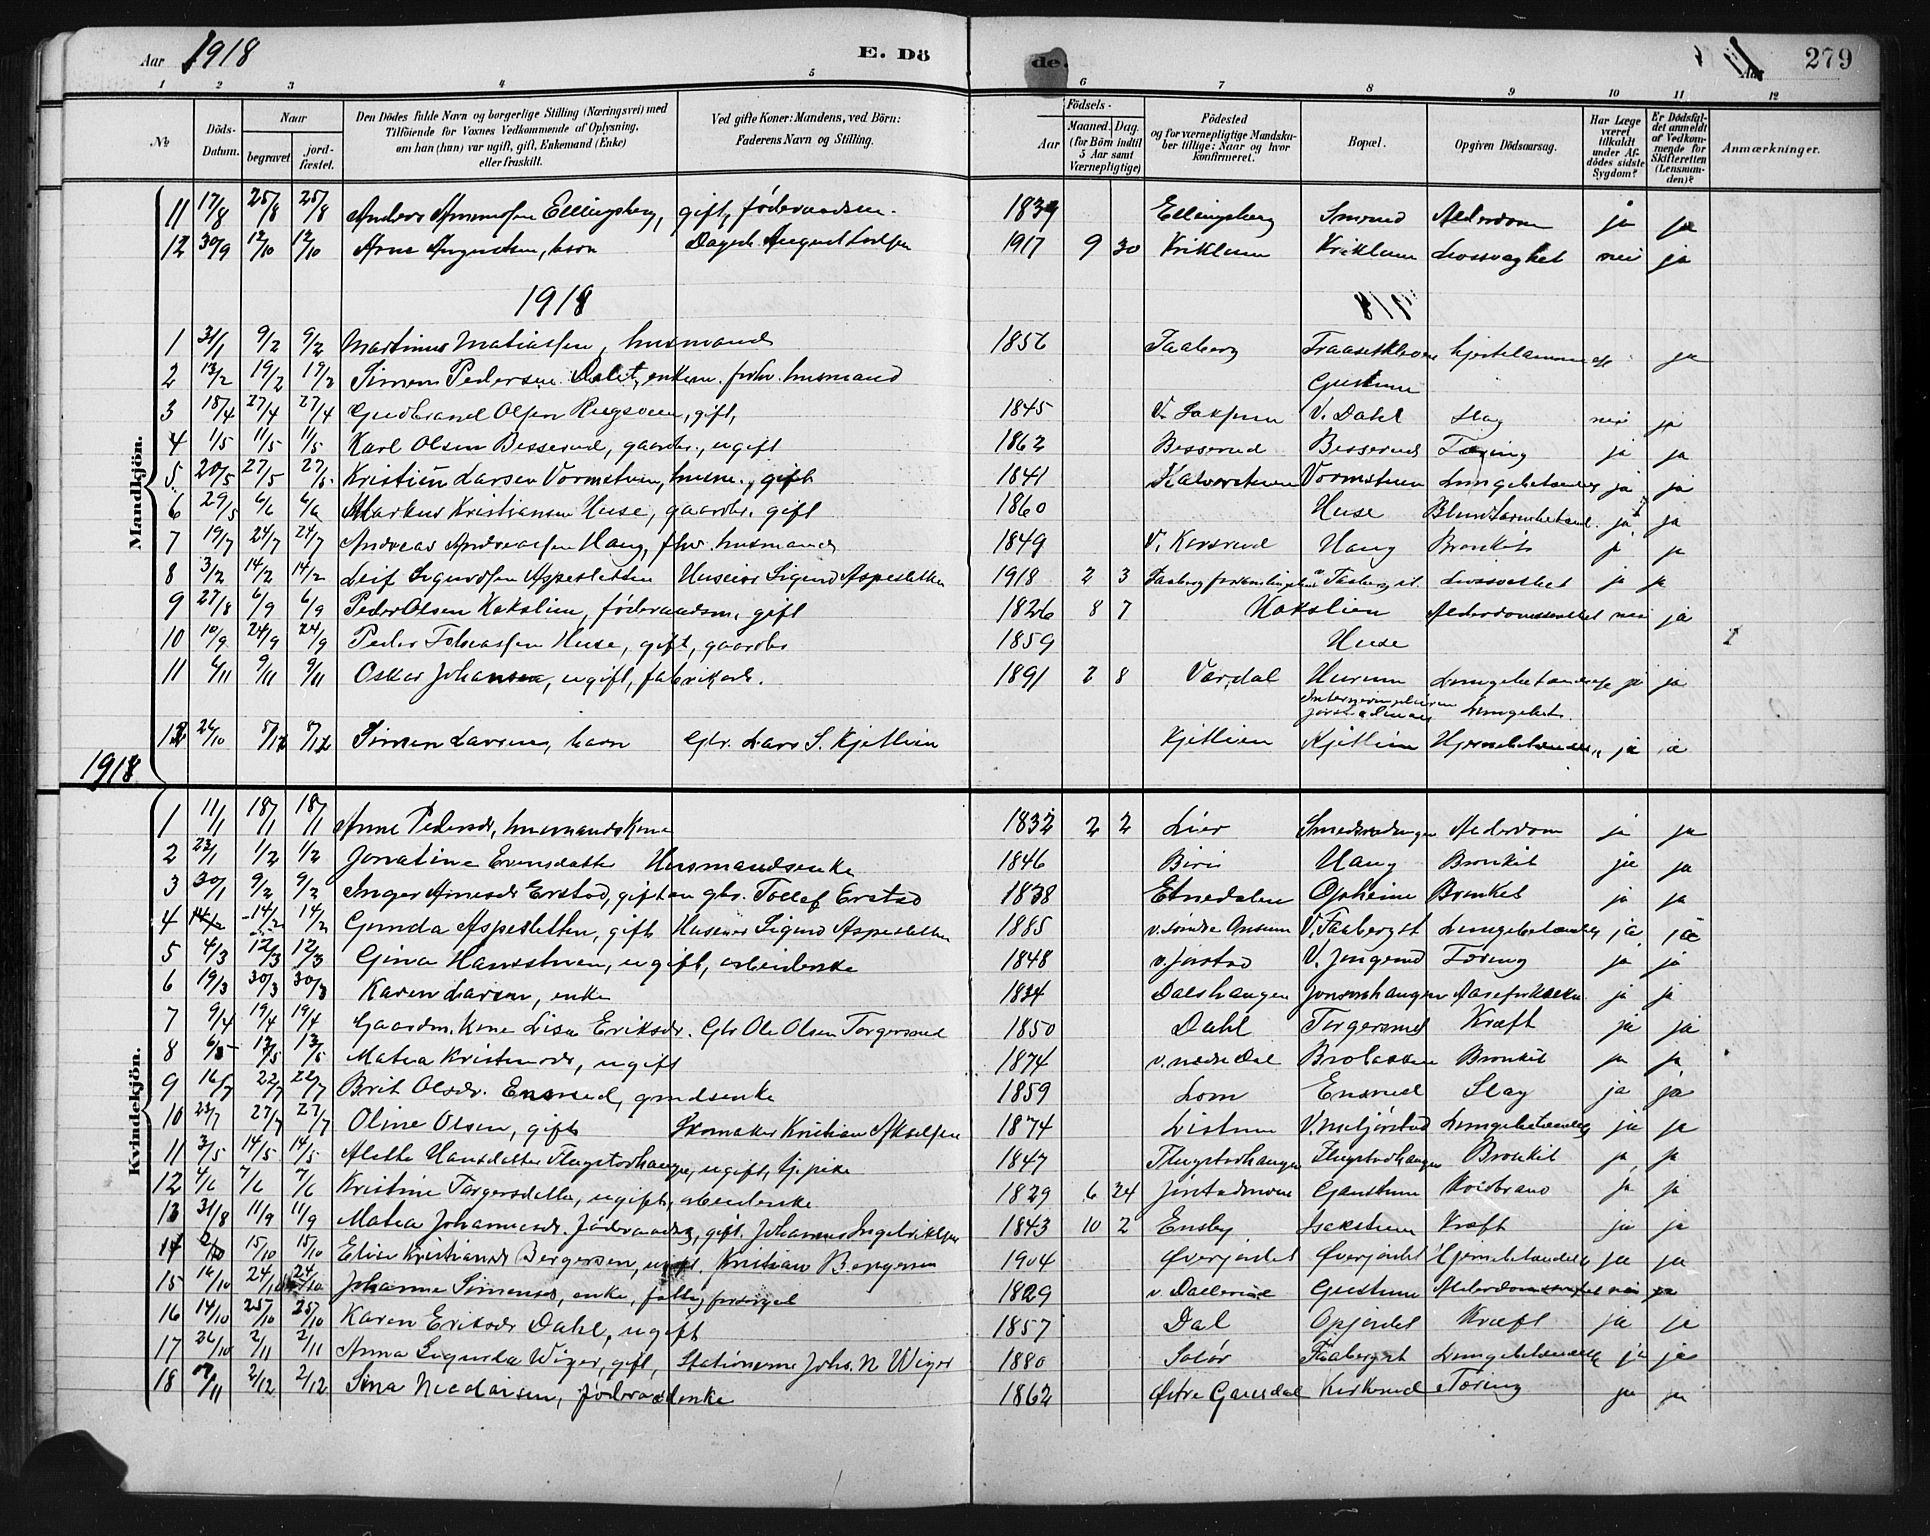 Aar 1918 E. Döde. Aar 279
1 2 3 4 5 6 7 8 9 10 11 12
No. Döds-Datum. Naar begravet. jord-fæstet. Den Dödes fulde Navn og borgerlige Stilling (Næringsvei) med Tilföiende for Voxnes Vedkommende af Oplysning, om han (hun) var ugift, gift, Enkemand (Enke) eller fraskilt. Ved gifte Koner: Mandens, ved Börn: Faderens Navn og Stilling. Födsels- Aar Maaned. Dag. (for Börn indtil 5 Aar samt Værnepligtige) Födested og for værnepligtige Mandskaber tillige: Naar og hvor konfirmeret. Bopæl. Opgiven Dödsaarsag. Har Læge været tilkaldt under Afdödes sidste Sygdom? Er Dödsfaldet anmeldt af Vedkommende for Skifteretten (Lensmanden)? Anmærkninger.
Mandkjön.
11 17/8 25/8 25/8 Anders Ellingsberg, gift, föderaadsm. Ellingsberg Smerud Alderdom ja ja
12 30/9 12/10 12/10 Arne Augustsen, barn Dagarb. August 1917 9 30 Kriklum Kriklum Livssvaghet nei ja
1918
1 31/1 9/2 9/2 Martinus Matiassen, husmand 1856 Faaberg ja
2 13/2 19/2 19/2 Simen Pedersen Dalet, enkem. forhv. husmand Gustum
3 18/4 27/4 27/4 Gudbrand Olsen Rugsveen, gift, 1845 V. Dahl Slag nei ja
4 1/5 11/5 11/5 Karl Olsen Besserud, gaardbr., ugift 1862 Besserud Besserud Tæring ja ja
5 20/5 27/5 27/5 Kristian Larsen Vormstuen, husm., gift 1841 Kalverstuen Vormstuen Lungebetændelse ja ja
6 29/5 6/6 6/6 Markus Kristiansen Huse, gaardbr. gift 1860 Huse Blindtarmbetænd. ja ja
7 19/7 24/7 24/7 Andreas Andreassen Haug, fhv. husmand 1849 V. Korsrud Haug Bronkit ja ja
8 3/2 14/2 14/2 Leif Sigurdsen Aspesletten Huseier Sigurd Aspesletten 1918 2 3 Faaberg forsamlingshus v. Faaberg st. Livssvakhet ja ja
9 27/8 6/9 6/9 Peder Olsen Kokslien, föderaadsm. gift 1826 8 7 Kokslien nei ja
10 10/9 24/9 24/9 Peder Tobiassen Huse, gift, gaardbr 1859 Huse
11 6/11 9/11 9/11 Oskar Johansen, ugift, fabrikarb. 1891 2 8 Vardal Hurum Lungebetændelse ja ja
Lungebet.
12 26/10 8/12 8/12 Simen Larsen, barn Gbr. Lars S. Kjetlien Kjetlien Kjetlien Hjernebetændelse ja ja
1918
Kvindekjön.
1 11/1 18/1 18/1 Anne Pedersdr, husmandskone 1832 2 2 Lier Alderdom ja ja
2 23/1 1/2 1/2 Jonatine Evensdatter Husmandsenke 1846 Biri Haug Bronkit ja ja
3 30/1 9/2 9/2 Inger Arnesdr Erstad, gift m gbr. Tollef Erstad 1838 Etnedalen Opheim Bronkit ja ja
4 14/2 14/2 14/2 Gunda Aspesletten, gift Huseier Sigurd Aspesletten 1885 V. Faaberg st Lungebetændelse ja ja
5 4/3 12/3 12/3 Gina Hansstuen, ugift, arbeiderske 1848 v. Jorstad V. Jongerud Tæring ja ja
6 19/3 30/3 30/3 Karen Larsen, enke 1834 Dalshaugen Jonsrudhaugen ja ja
7 9/4 19/4 19/4 Gaardm. kone Lisa Eriksdr. Gbr Ole Olsen Torgersrud 1850 Dahl Torgersrud Kræft ja ja
8 6/5 13/5 13/5 Matea Kristensdr, ugift 1874 v. nedre Dal Brobakken Bronkit ja ja
9 16/7 22/7 22/7 Brit Olsdr. Ensrud, grdsenke 1859 Lom Ensrud Slag ja ja
10 23/7 27/7 27/7 Oline Olsen, gift Skomaker Kristian Akselsen 1874 Listum Lungebetændelse ja ja
11 3/5 14/5 14/5 Alette Hansdatter Flugstadhaugen, ugift, tjpike 1847 Flugstadhaugen Flugstadhaugen Bronkit ja ja
12 4/6 7/6 7/6 Kristine Torgersdatter, ugift, arbeiderske 1829 6 24 Jörstadmoen Gaustum Koldbrand ja ja
13 31/8 11/9 11/9 Matea Johannesdr. föderaadsk, gift. Johannes Ingebriktsen 1843 10 2 Ensby Isakstuen Kræft ja ja
14 2/10 15/10 15/10 Elise Kristiansdr Bergersen, ugift. Kristian Bergersen 1904 Överjordet Överjordet Hjernebetændelse ja ja
15 16/10 24/10 24/10 Johanne Simensdr, enke, fattigforsörget 1829 v. Dallerud Gustum nei ja
16 14/10 25/10 25/10 Karen Eriksdr Dahl, ugift 1857 Dal Opjordet Kræft ja ja
17 26/10 2/11 2/11 Anna Sigurda Wiger, gift, Stationsm. Johs. N Wiger 1880 Solör Faaberg st Lungebetændelse ja ja
18 /11 2/12 2/12 Sina Nicolaisen, föderaadenke 1862 Östre Gausdal Kirkerud Tæring ja ja